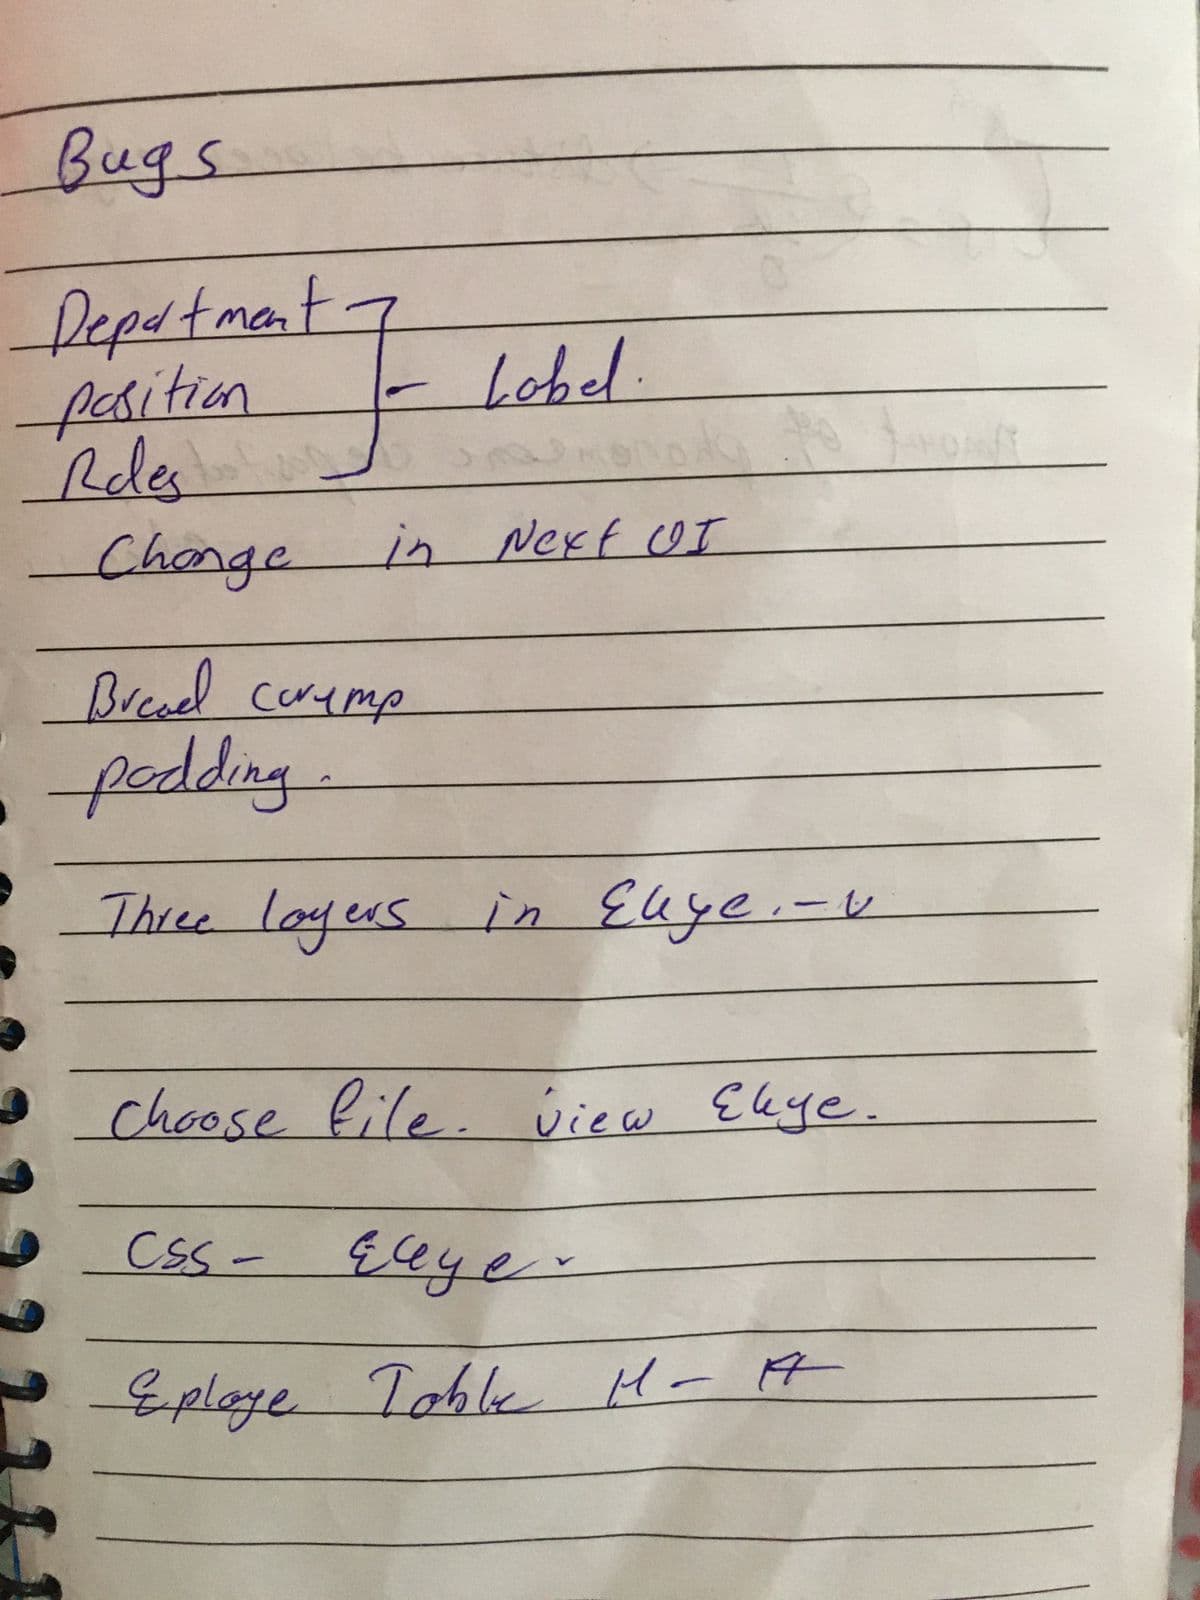 Bugs
Department
position - Label.
Roles
Change in Next UI
Bread crump
padding.
Three layers in
choose file. view
CSS -
Eploye Table H - A